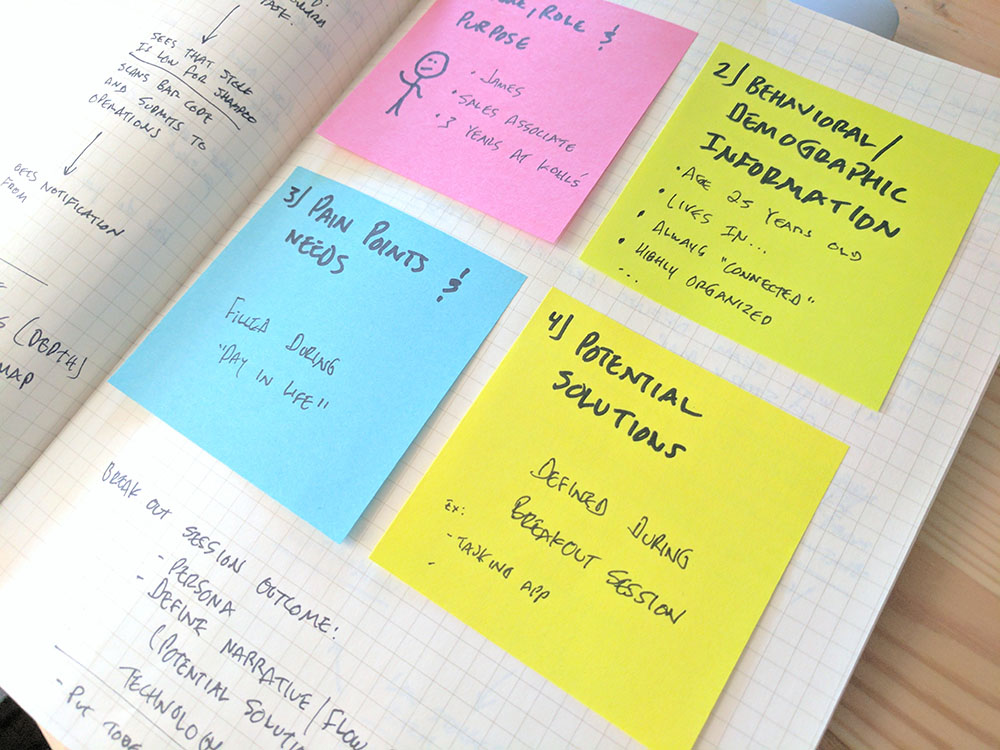 TASK.
SEES THAT STOCK
IS LOW FOR
SCANS BAR CODE
AND SUBMITS TO
OPERATIONS
GETS NOTIFICATION
FROM
(DEPTH)
MAP
ROLE &
PURPOSE
• JAMES
• SALES ASSOCIATE
• 3 YEARS AT KOHLS'
2) BEHAVIORAL/
DEMOGRAPHIC
INFORMATION
• AGE 25 YEARS OLD
• LIVES IN...
• ALWAYS "CONNECTED"
• HIGHLY ORGANIZED
...
3) PAIN POINTS &
NEEDS
FILLED DURING
"DAY IN LIFE"
4) POTENTIAL
SOLUTIONS
DEFINED DURING
BREAKOUT SESSION
EX:
- TASKING APP
BREAK OUT SESSION OUTCOME:
- PERSONA
- DEFINE NARRATIVE/FLOW
(POTENTIAL
TECHNOLO
- PUT